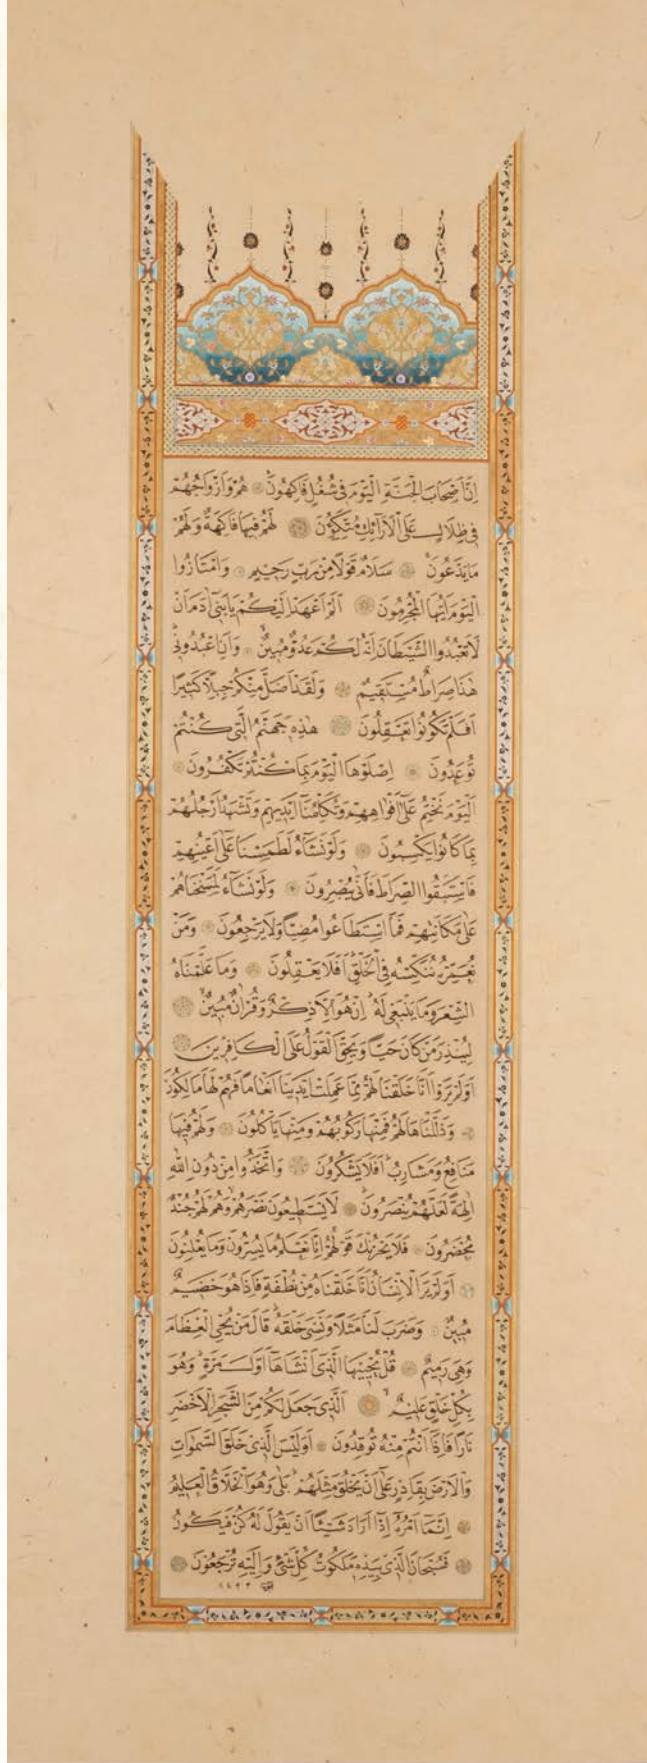 اِنَّ اَصْحَابَ الْجَنَّةِ الْيَوْمَ فٖي شُغُلٍ فَاكِهُونَ هُمْ وَاَزْوَاجُهُمْ
فٖي ظِلَالٍ عَلَى الْاَرَٓائِكِ مُتَّكِؤُ۫نَ لَهُمْ فٖيهَا فَاكِهَةٌ وَلَهُمْ
مَا يَدَّعُونَ سَلَامٌ قَوْلًا مِنْ رَبٍّ رَحٖيمٍ وَامْتَازُوا
الْيَوْمَ اَيُّهَا الْمُجْرِمُونَ اَلَمْ اَعْهَدْ اِلَيْكُمْ يَا بَنٖٓي اٰدَمَ اَنْ
لَا تَعْبُدُوا الشَّيْطَانَ اِنَّهُ لَكُمْ عَدُوٌّ مُبٖينٌ وَاَنِ اعْبُدُونٖي
هٰذَا صِرَاطٌ مُسْتَقٖيمٌ وَلَقَدْ اَضَلَّ مِنْكُمْ جِبِلًّا كَثٖيرًا
اَفَلَمْ تَكُونُوا تَعْقِلُونَ هٰذِهٖ جَهَنَّمُ الَّتٖي كُنْتُمْ
تُوعَدُونَ اِصْلَوْهَا الْيَوْمَ بِمَا كُنْتُمْ تَكْفُرُونَ
اَلْيَوْمَ نَخْتِمُ عَلٰٓى اَفْوَاهِهِمْ وَتُكَلِّمُنَٓا اَيْدٖيهِمْ وَتَشْهَدُ اَرْجُلُهُمْ
بِمَا كَانُوا يَكْسِبُونَ وَلَوْ نَشَٓاءُ لَطَمَسْنَا عَلٰٓى اَعْيُنِهِمْ
فَاسْتَبَقُوا الصِّرَاطَ فَاَنّٰى يُبْصِرُونَ وَلَوْ نَشَٓاءُ لَمَسَخْنَاهُمْ
عَلٰى مَكَانَتِهِمْ فَمَا اسْتَطَاعُوا مُضِيًّا وَلَا يَرْجِعُونَ وَمَنْ
نُعَمِّرْهُ نُنَكِّسْهُ فِي الْخَلْقِ اَفَلَا يَعْقِلُونَ وَمَا عَلَّمْنَاهُ
الشِّعْرَ وَمَا يَنْبَغٖي لَهُ اِنْ هُوَ اِلَّا ذِكْرٌ وَقُرْاٰنٌ مُبٖينٌ
لِيُنْذِرَ مَنْ كَانَ حَيًّا وَيَحِقَّ الْقَوْلُ عَلَى الْكَافِرٖينَ
اَوَلَمْ يَرَوْا اَنَّا خَلَقْنَا لَهُمْ مِمَّا عَمِلَتْ اَيْدٖينَا اَنْعَامًا فَهُمْ لَهَا مَالِكُونَ
وَذَلَّلْنَاهَا لَهُمْ فَمِنْهَا رَكُوبُهُمْ وَمِنْهَا يَاْكُلُونَ وَلَهُمْ فٖيهَا
مَنَافِعُ وَمَشَارِبُ اَفَلَا يَشْكُرُونَ وَاتَّخَذُوا مِنْ دُونِ اللّٰهِ
اٰلِهَةً لَعَلَّهُمْ يُنْصَرُونَ لَا يَسْتَطٖيعُونَ نَصْرَهُمْ وَهُمْ لَهُمْ جُنْدٌ
مُحْضَرُونَ فَلَا يَحْزُنْكَ قَوْلُهُمْ اِنَّا نَعْلَمُ مَا يُسِرُّونَ وَمَا يُعْلِنُونَ
اَوَلَمْ يَرَ الْاِنْسَانُ اَنَّا خَلَقْنَاهُ مِنْ نُطْفَةٍ فَاِذَا هُوَ خَصٖيمٌ
مُبٖينٌ وَضَرَبَ لَنَا مَثَلًا وَنَسِيَ خَلْقَهُ قَالَ مَنْ يُحْيِ الْعِظَامَ
وَهِيَ رَمٖيمٌ قُلْ يُحْيٖيهَا الَّذٖٓي اَنْشَاَهَٓا اَوَّلَ مَرَّةٍ وَهُوَ
بِكُلِّ خَلْقٍ عَلٖيمٌ اَلَّذٖي جَعَلَ لَكُمْ مِنَ الشَّجَرِ الْاَخْضَرِ
نَارًا فَاِذَٓا اَنْتُمْ مِنْهُ تُوقِدُونَ اَوَلَيْسَ الَّذٖي خَلَقَ السَّمٰوَاتِ
وَالْاَرْضَ بِقَادِرٍ عَلٰٓى اَنْ يَخْلُقَ مِثْلَهُمْ بَلٰى وَهُوَ الْخَلَّاقُ الْعَلٖيمُ
اِنَّمَٓا اَمْرُهُٓ اِذَٓا اَرَادَ شَيْـًٔا اَنْ يَقُولَ لَهُ كُنْ فَيَكُونُ
فَسُبْحَانَ الَّذٖي بِيَدِهٖ مَلَكُوتُ كُلِّ شَيْءٍ وَاِلَيْهِ تُرْجَعُونَ